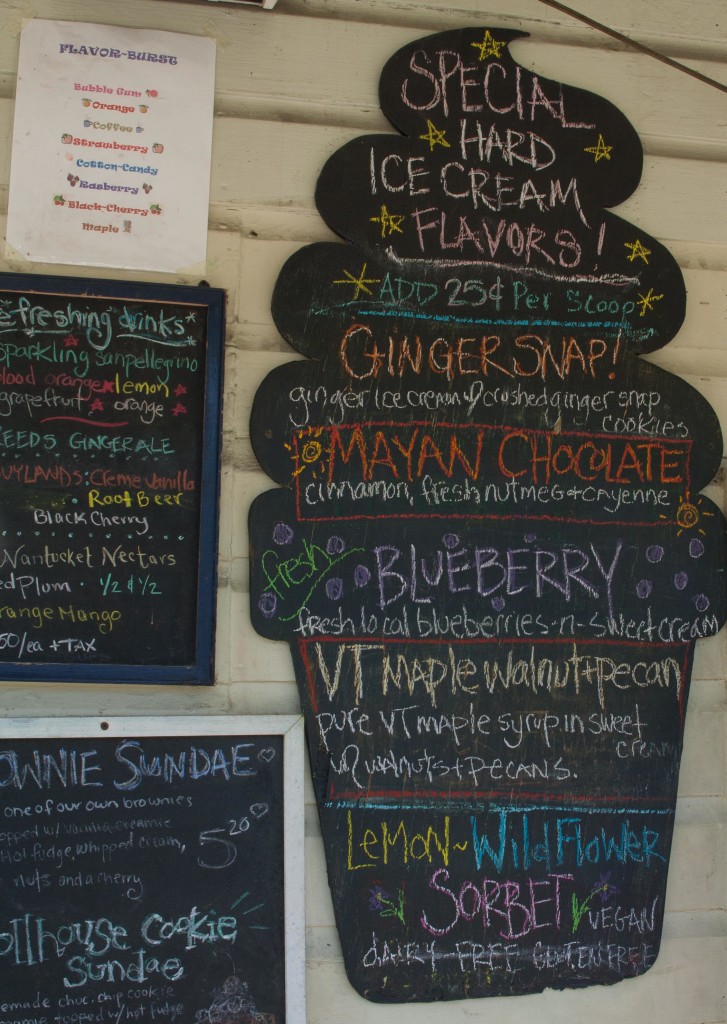 FLAVOR-BURST
Bubble Gum
Orange
Coffee
Strawberry
Cotton-Candy
Rasberry
Black-Cherry
Maple
efreshing drinks
sparkling sanpellegrino
lood orange lemon
grapefruit orange
EEDS GINGERALE
UYLANDS: Creme Vanilla
Root Beer
Black Cherry
Nantucket Nectars
ed Plum · 1/2 & 1/2
range Mango
50/ea + TAX
OWNIE SUNDAE
one of our own brownies
opped w/ vanilla creamie
Hot fudge, whipped cream,
nuts and a cherry
5.20
ollhouse Cookie
Sundae
emade choc. chip cookie
eamie topped w/ hot fudge
SPECIAL
HARD
ICE CREAM
FLAVORS!
ADD 25¢ Per Scoop
GINGERSNAP!
ginger ice cream w/ crushed ginger snap
cookies
MAYAN CHOCOLATE
cinnamon, fresh nutmeg + cayenne
fresh
BLUEBERRY
fresh local blueberries-n-sweet cream
VT Maple Walnut + pecan
pure VT maple syrup in sweet
cream
w/ walnuts + pecans.
LeMON~WildFlOWER
SORBET
VEGAN
dairy-FREE GLUTEN FREE